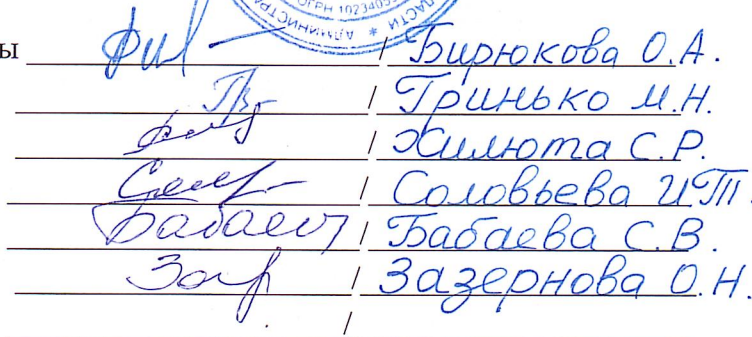 ОГРН 1023405
ОБЛАСТИ * АДМИНИСТР
ы / Бирюкова О.А.
/ Гринько М.Н.
/ Жилюта С.Р.
/ Соловьева И.П.
Бабаев / Бабаева С.В.
Заз / Зазернова О.Н.
/